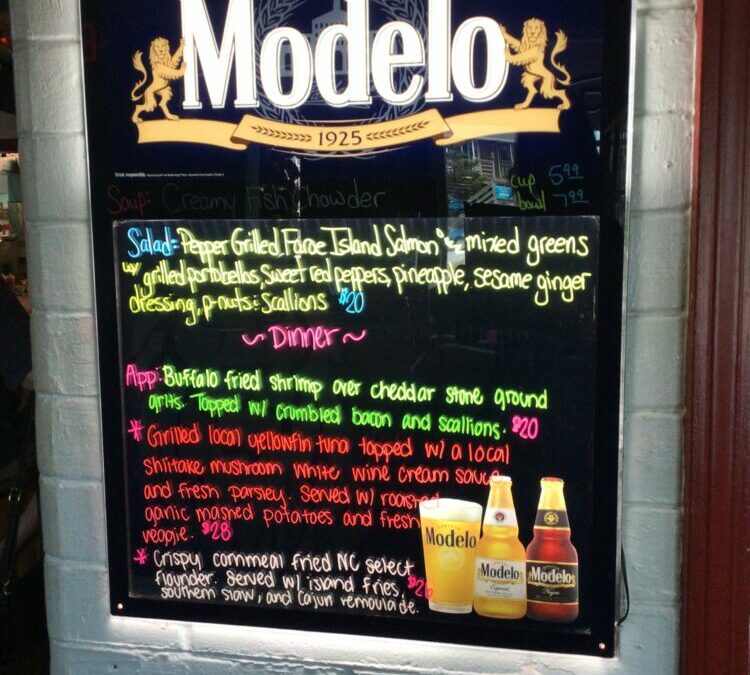 Modelo
1925
Soup: Creamy Fish Chowder cup 5.99
bowl 7.99
Salad= Pepper Grilled Faroe Island Salmon mixed greens
w/ grilled portobellos, sweet red peppers, pineapple, sesame ginger
dressing, p-nuts & scallions $20
~ Dinner ~
App: Buffalo fried shrimp over cheddar stone ground
grits. Topped w/ crumbled bacon and scallions. $20
* Grilled local yellowfin tuna topped w/ a local
shiitake mushroom white wine cream sauce
and fresh parsley. Served w/ roasted
garlic mashed potatoes and fresh
veggie. $28
* Crispy cornmeal fried NC select
flounder. Served w/ island fries,
southern slaw, and Cajun remoulade.
Modelo
Modelo
Especial
Modelo
Negra